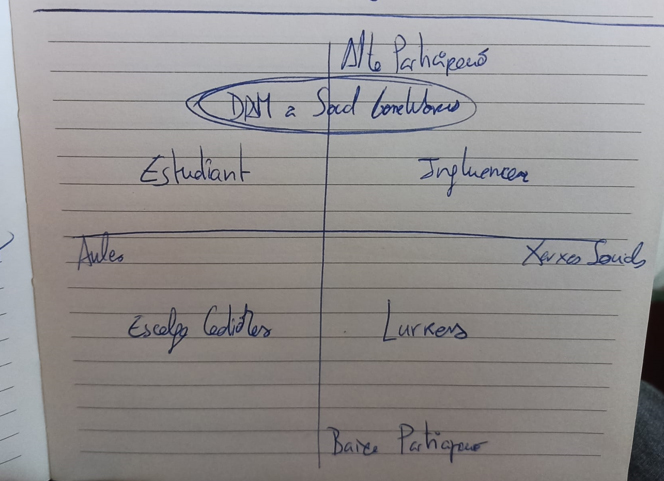 Alta Participació
DDM a Social
Estudiant
Influencer
Aules
Xarxes Socials
Escalfa Cadires
Lurkers
Baixa Participació